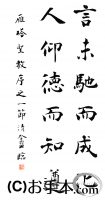 言未馳而成化
人仰德而知遵
雁塔聖教序之一節
(C)お手本.com